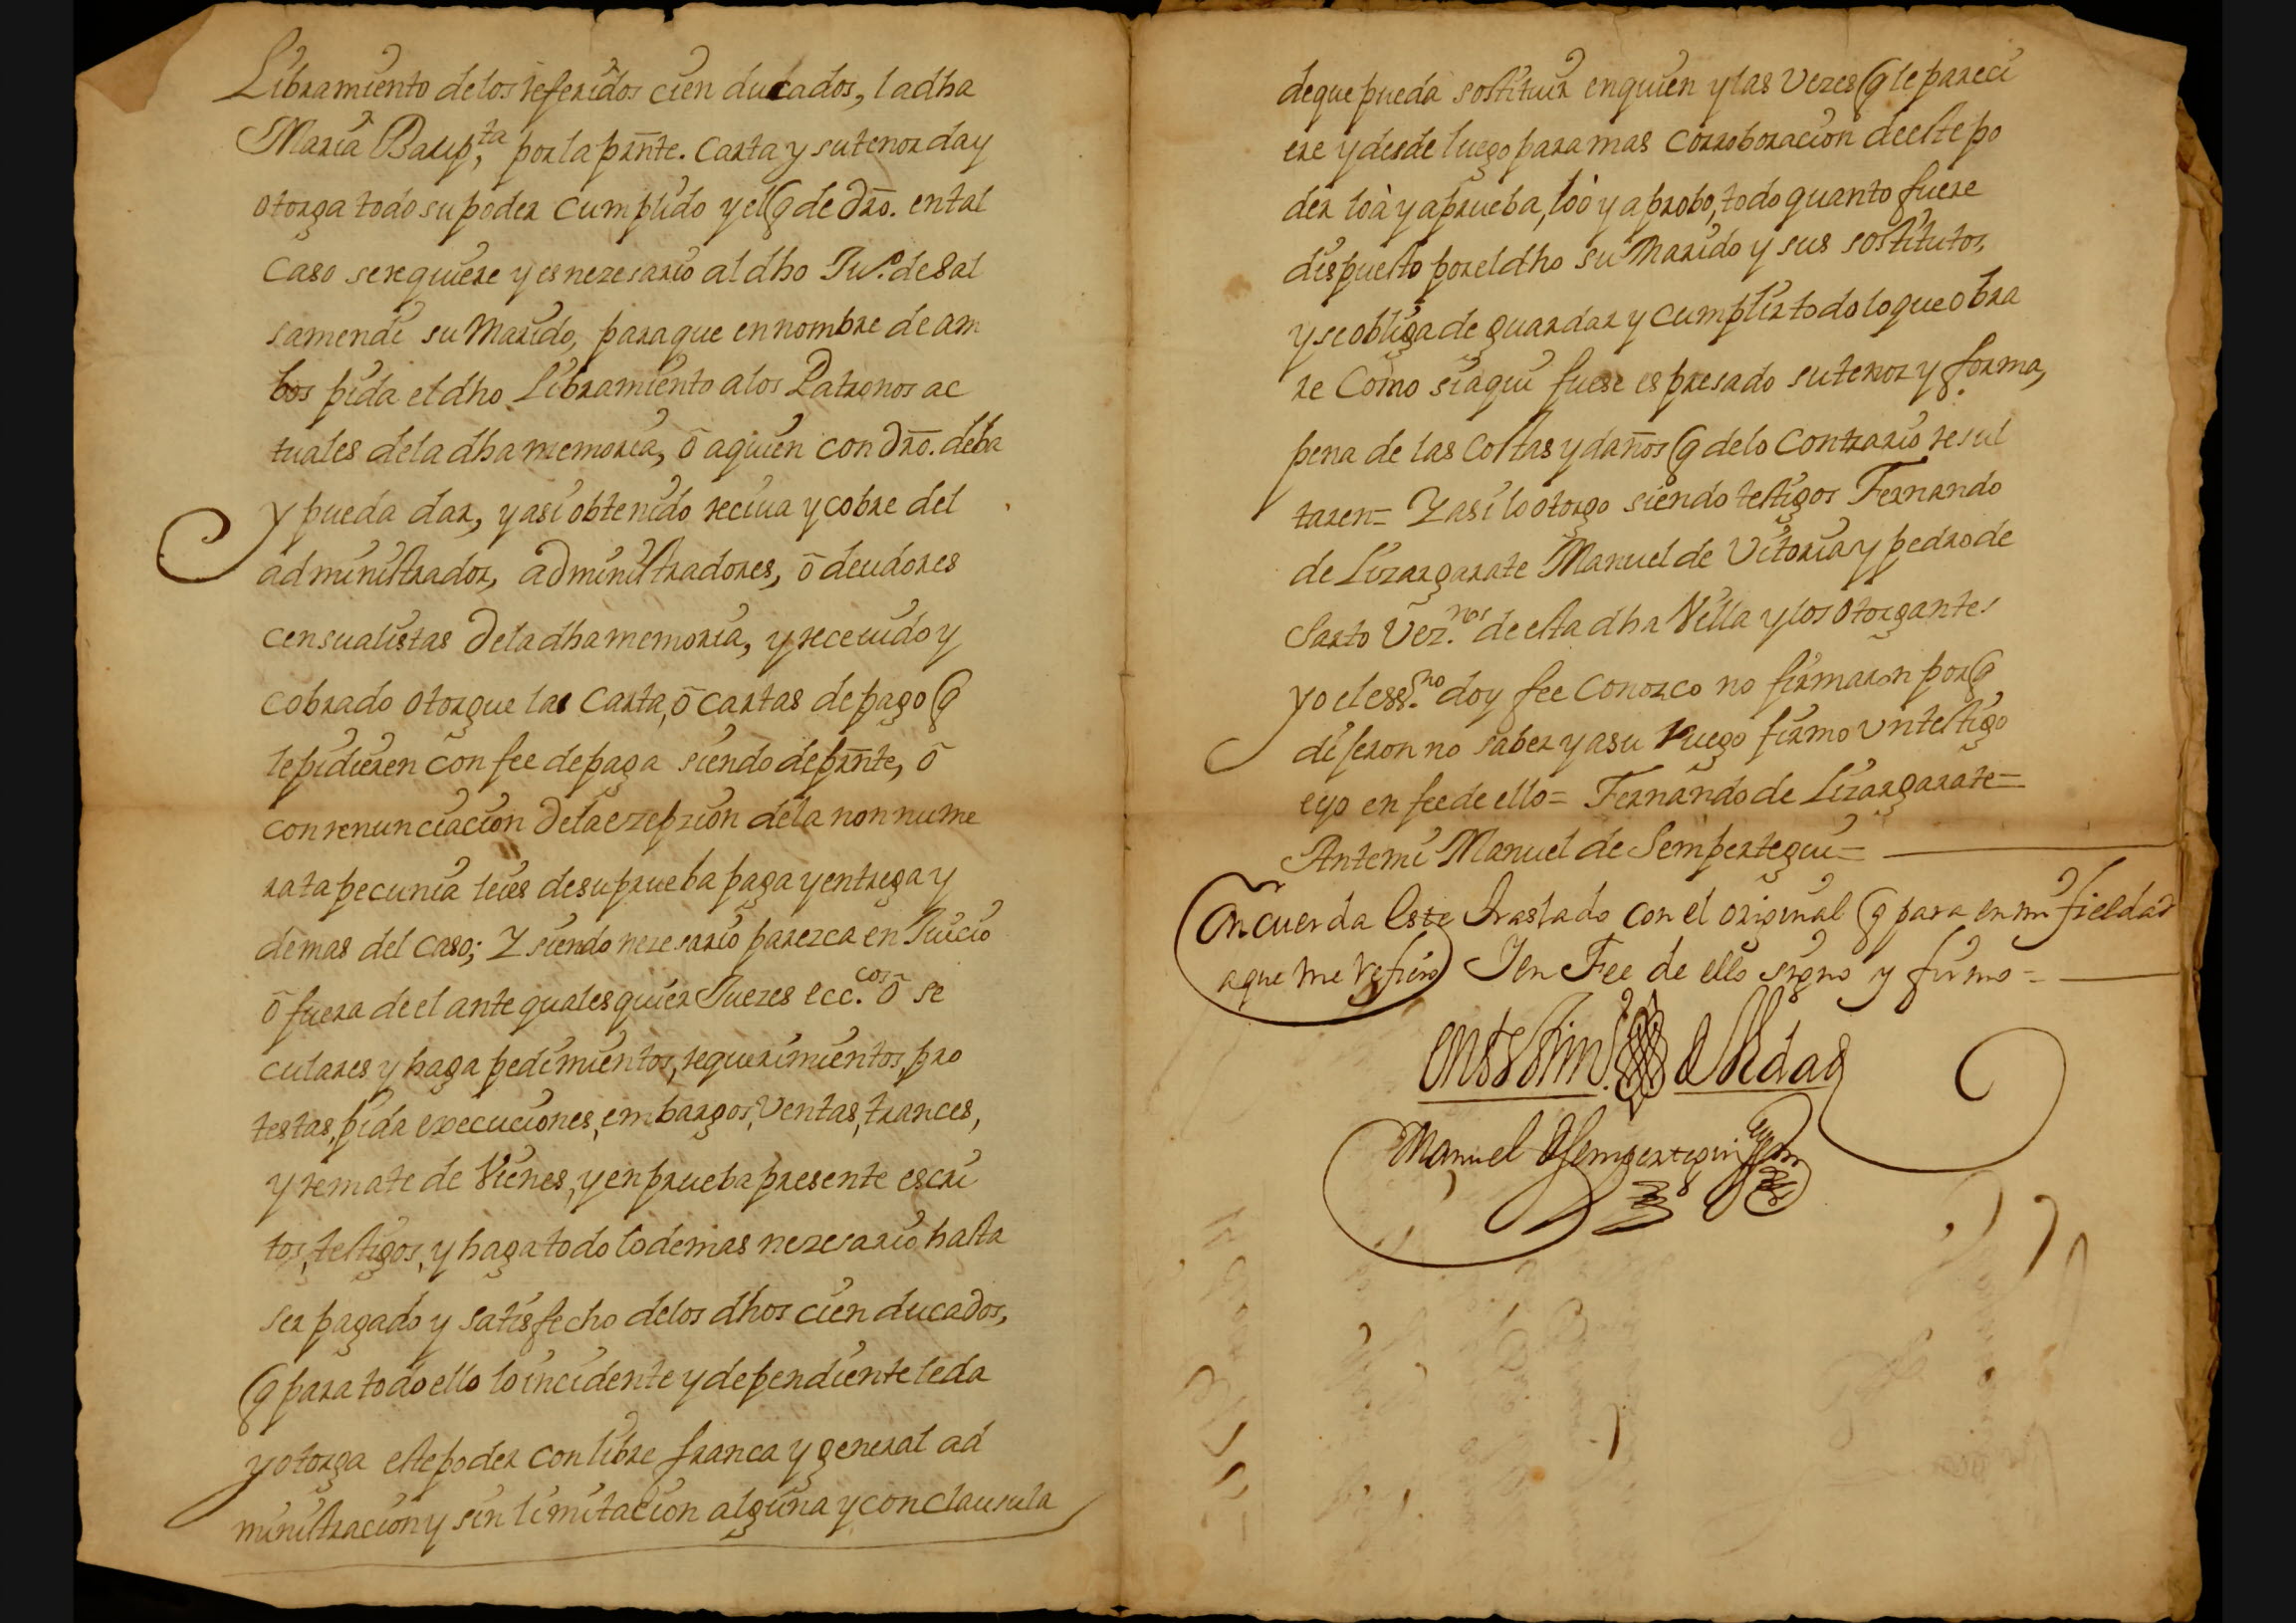 Libramiento delos referidos cien ducados, ladha
Maria Baup,ta por la prn̄te. Carta y su tenor da y
otorga todo su poder cumplido y el q de dr̄o. en tal
Caso se requiere y es nezesario al dho Ju.o de Sal
samendi su Marido, para que en nombre de am
bos pida el dho Libramiento a los Patronos ac
tuales de la dha memoria, ō a quien con dr̄o. deba
y pueda dar, y asi obtenido reciua y cobre del
administrador, administradores, ō deudores
censualistas de la dha memoria, y receuido y
cobrado otorgue las Carta, ō cartas de pago q
le pidieren con fee de paga siendo de prn̄te, ō
con renunciacion de la ezepzion de la non nume
rata pecunia leies de su prueba paga y entrega y
demas del caso; Y siendo nezesario parezca en Juicio
ō fuera de el ante qualesquier Juezes ecc.cos ō se
culares y haga pedimientos, requerimientos, pro
testas, pida execuciones, embargos, Ventas, trances,
y remate de Vienes, y en prueba presente escri
tos, testigos, y haga todo lo demas nezesario hasta
ser pagado y satisfecho de los dhos cien ducados,
q para todo ello lo incidente y dependiente le da
y otorga este poder con libre franca y general ad
ministracion y sin limitacion alguna y con clausula
de que pueda sostituir en quien y las Vezes q le pareci
ere y desde luego para mas corroboracion de este po
der loà y aprueba, loò y aprobo, todo quanto fuere
dispuesto por el dho su Marido y sus sostitutos,
y se obliga de guardar y cumplir todo lo que obra
re Como si aqui fuese espresado su tenor y forma,
pena de las Costas y daños q de lo contrario resul
taren= Y asi lo otorgo siendo testigos Fernando
de Lizargarate Manuel de Vitoria y pedro de
Sarto Vez.nos de esta dha Villa y los otorgantes
yo el ess.no doy fee Conozco no firmaron por q
dijeron no saber y a su Ruego firmo Un testigo
e yo en fee de ello= Fernando de Lizargarate=
Ante mi Manuel de Sempertegui=
Concuerda Este traslado con el original q para en mi fieldad
a que me refiero Y en Fee de ello signo y firmo =
en testim.o de Verdad
Manuel de Sempertegui